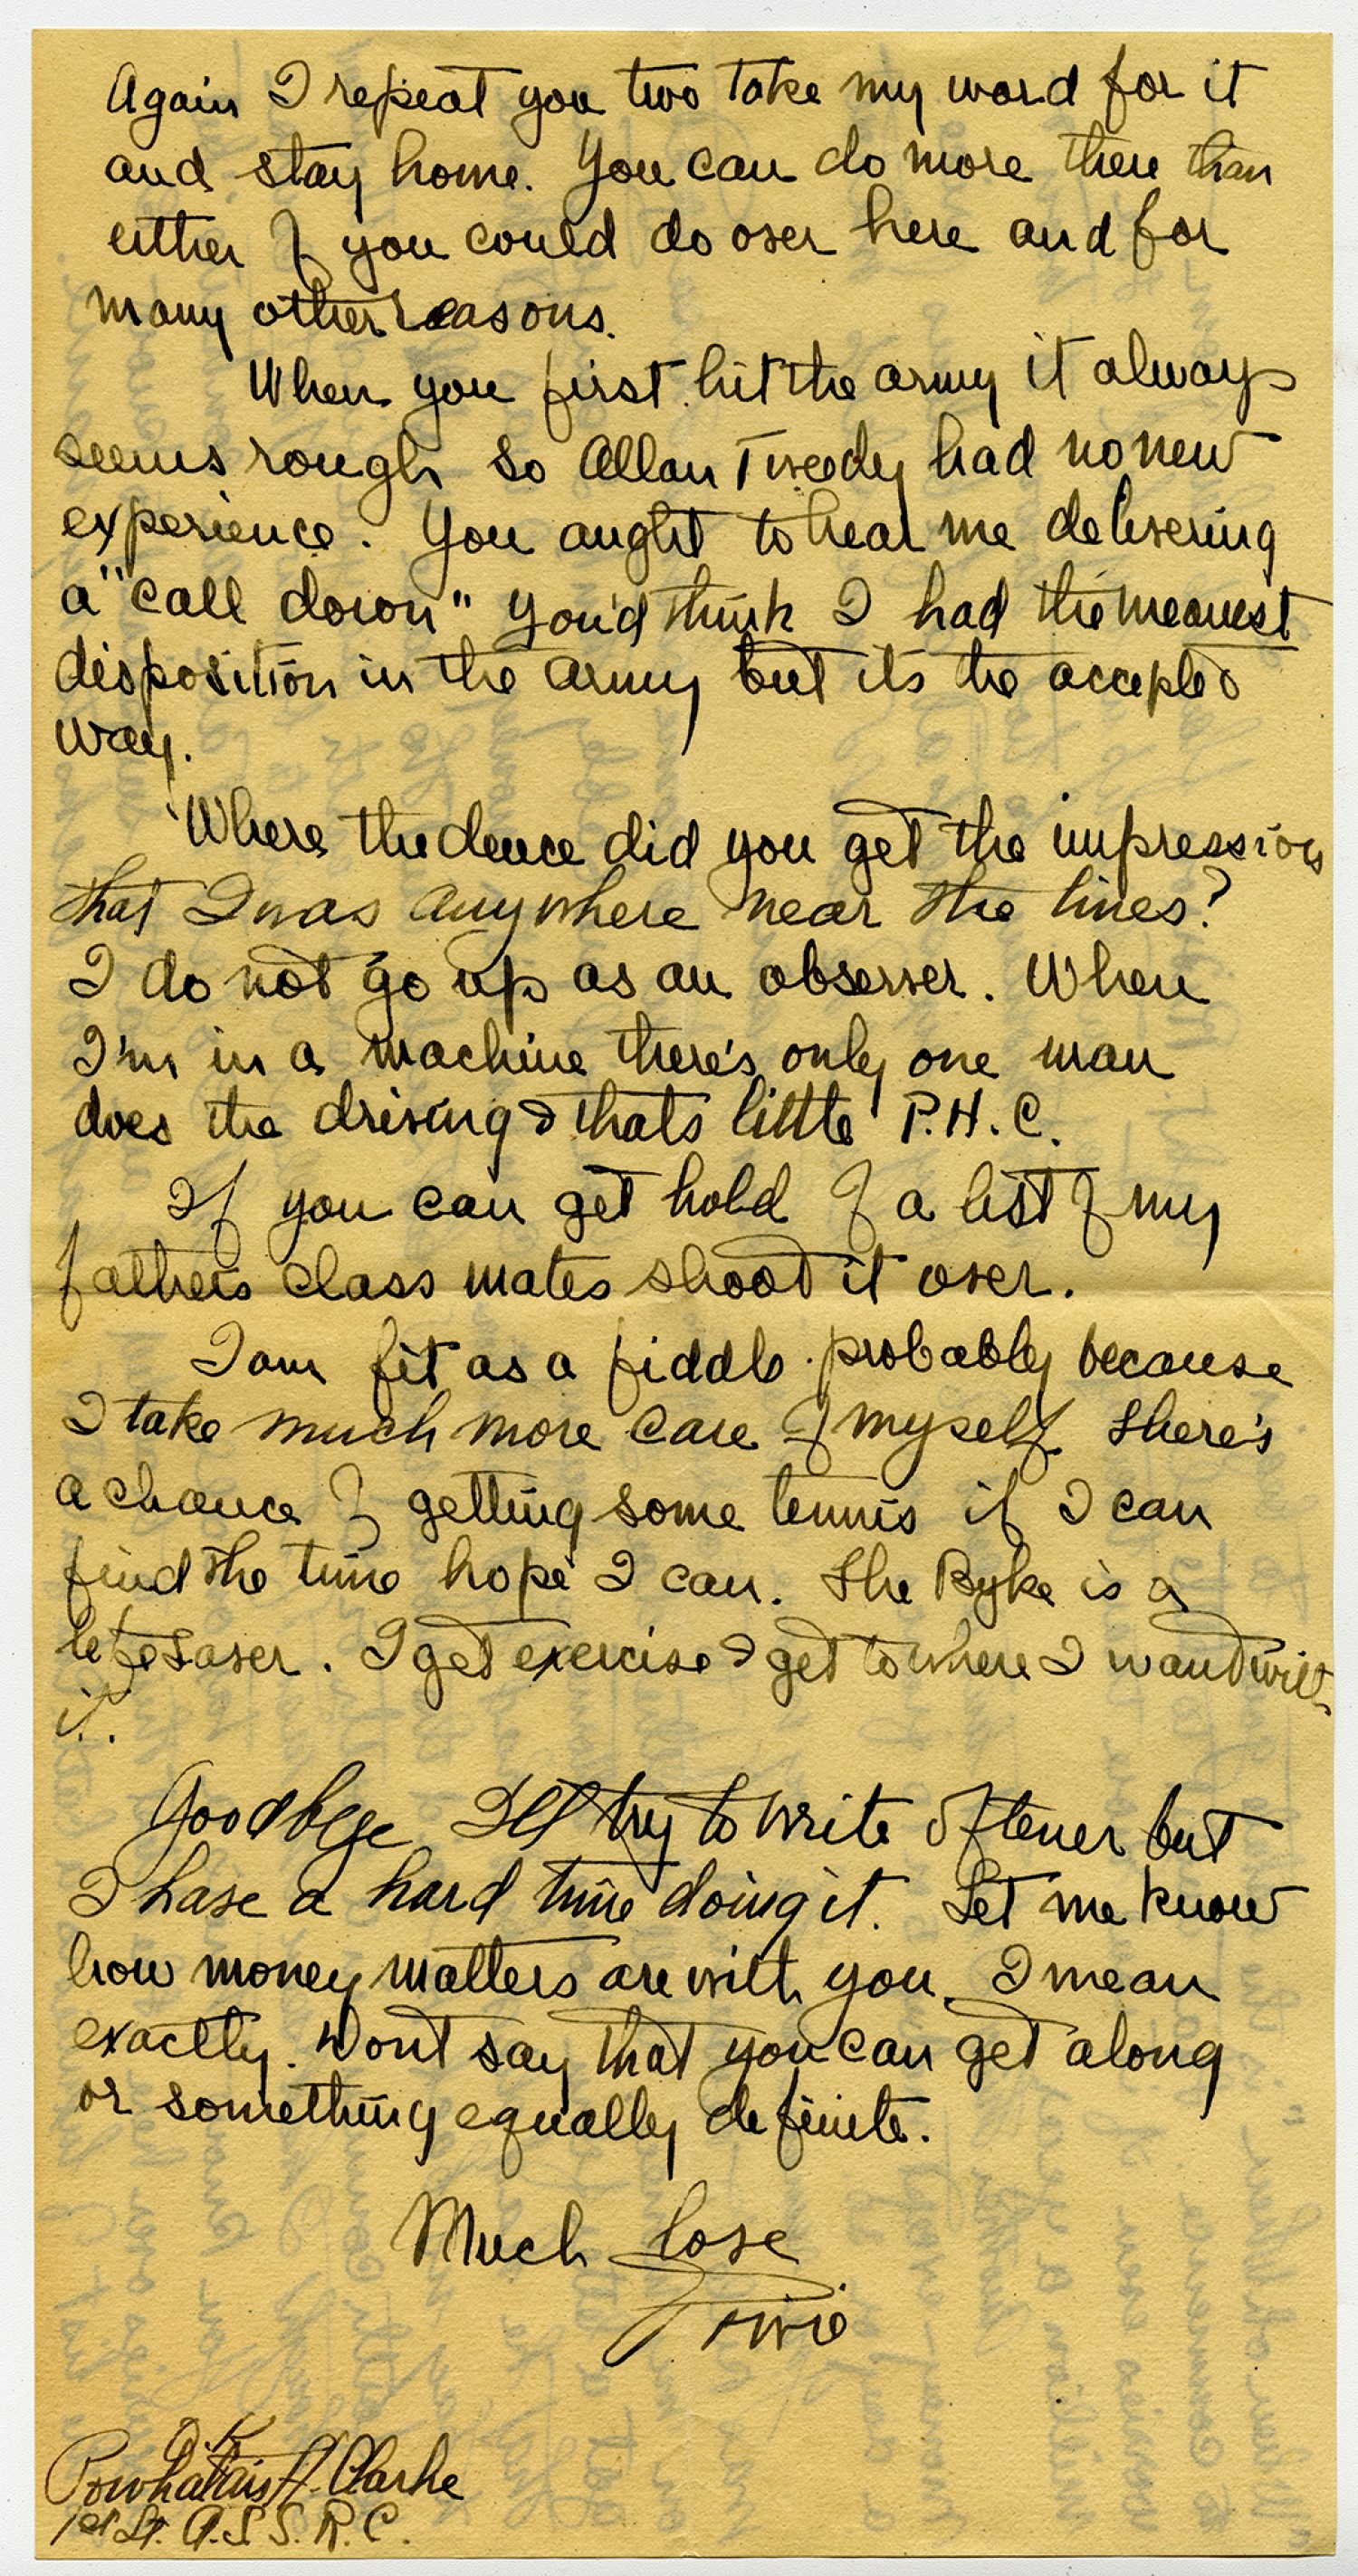 Again I repeat you two take my word for it
and stay home. You can do more there than
either of you could do over here and for
many other reasons.
When you first hit the army it always
seems rough so Allan Tweedy had no new
experience. You aught to hear me delivering
a "call down" You'd think I had the meanest
disposition in the army but its the accepted
way.
Where the deuce did you get the impression
that I was anywhere near the lines?
I do not go up as an observer. When
I'm in a machine there's only one man
does the driving & thats little P.H.C.
If you can get hold of a list of my
fathers class mates shoot it over.
I am fit as a fiddle probably because
I take much more care of myself. There's
a chance of getting some tennis if I can
find the time hope I can. The Byke is a
life saver. I get exercise & get to where I want with
it.
Goodbye I'll try to write oftener but
I have a hard time doing it. Let me know
how money matters are with you. I mean
exactly. Wont say that you can get along
or something equally definite.
Much love
O.K.
Powhatan H. Clarke
1st Lt. A.S.S.R.C.